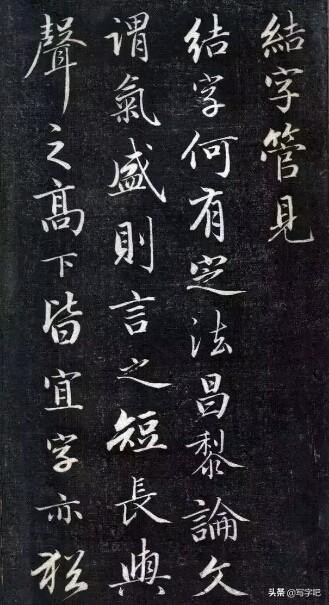 結字管見
結字何有定法昌黎論文
謂氣盛則言之短長與
聲之高下皆宜字亦猶
头条 @写字吧